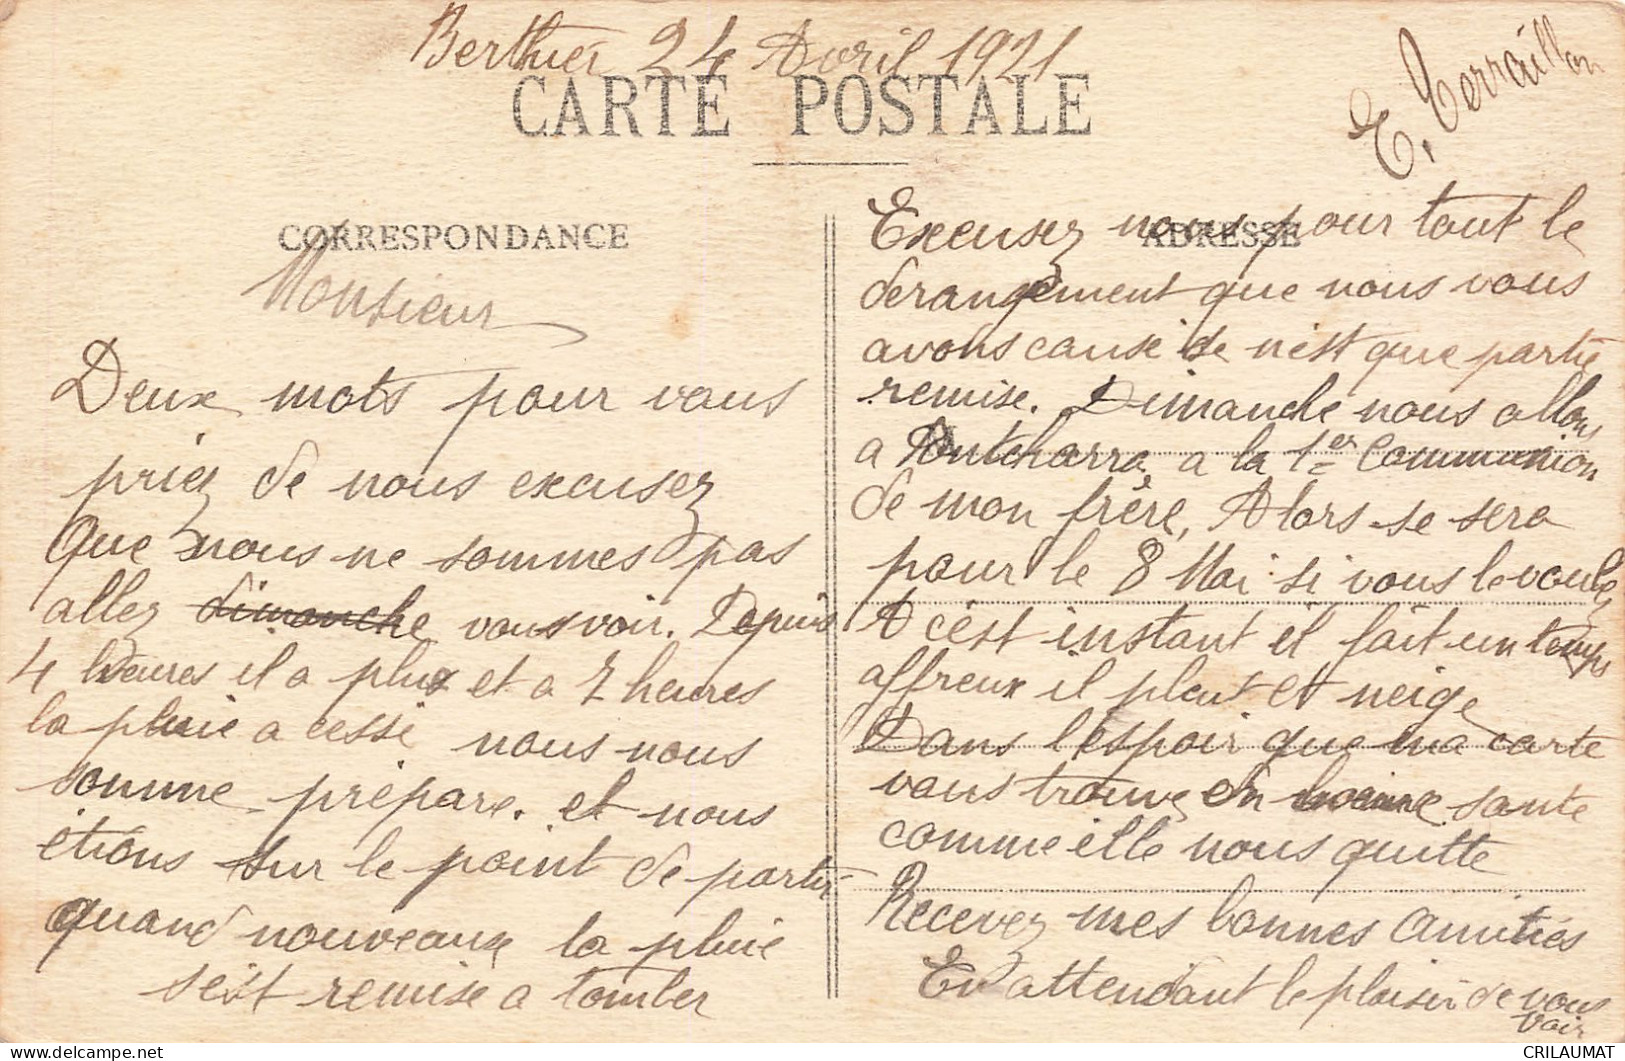 Berthier 24 Avril 1921
CARTE POSTALE
E. Terraillon
CORRESPONDANCE
Monsieur
Deux mots pour vous
priez de nous excusez
Que nous ne sommes pas
allez dimanche vous voir. Depuis
4 heures il a plux et a 7 heures
la pluie a cessé nous nous
somme préparé. et nous
étions sur le point de partir
quand nouveaux la pluie
s'est remise a tomber
ADRESSE
Excusez nous pour tout le
derangement que nous vous
avons causé se n'est que partie
remise. Dimanche nous allons
a Pontcharra a la 1er Communion
de mon frère, Alors se sera
pour le 8 Mai si vous le voulez
A c'est instant il fait un temps
affreux il pleut et neige
Dans l'espoir que ma carte
vous trouve en bonne sante
comme elle nous quitte
Recevez mes bonnes amitiés
En attendant le plaisir de vous
voir
CRILAUMAT